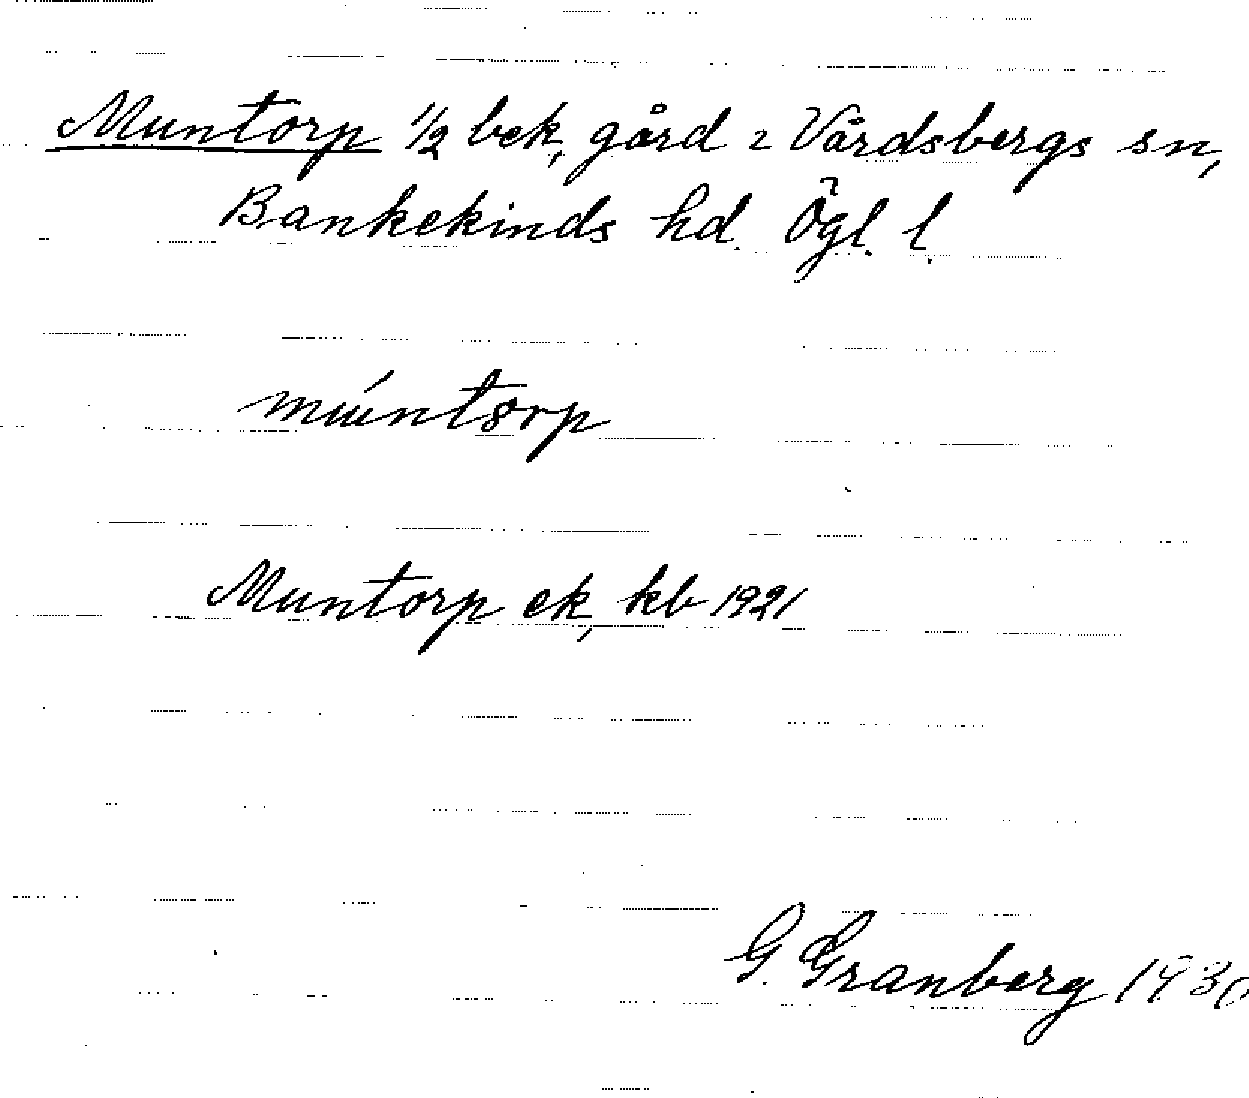 Muntorp 1/2 bek, gård i Vårdsbergs sn,
Bankekinds hd. Ögl. l.
múntorp
Muntorp ek, kb 1921
G. Granberg 1930